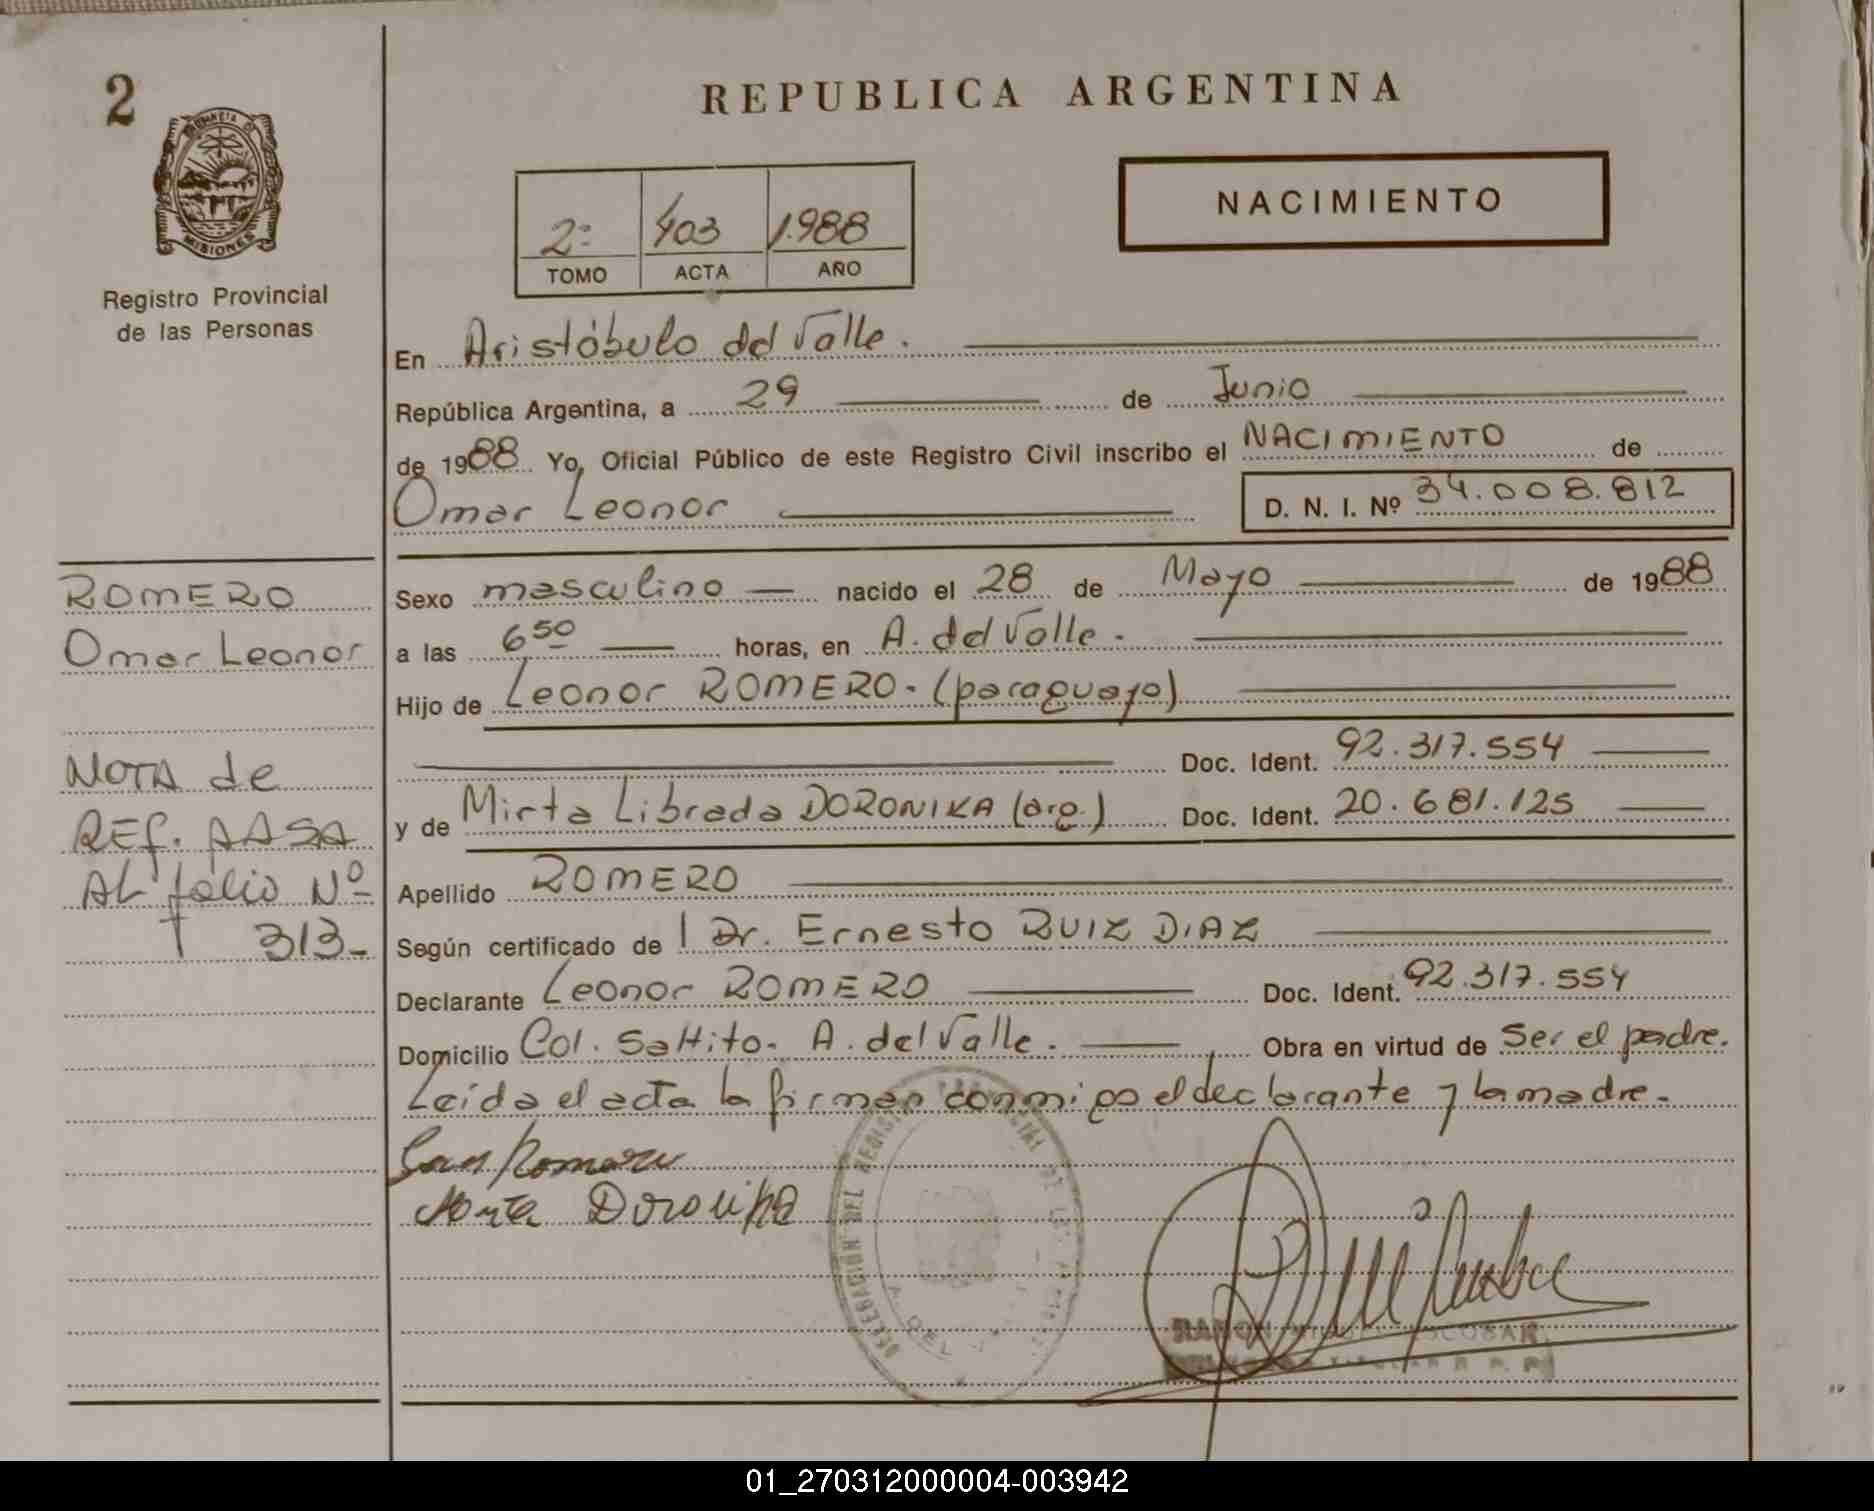 2
PROVINCIA DE
MISIONES
Registro Provincial
de las Personas
REPUBLICA ARGENTINA
2º 403 1.988
TOMO ACTA AÑO
NACIMIENTO
En Aristóbulo del Valle.
República Argentina, a 29 de Junio
de 1988 Yo, Oficial Público de este Registro Civil inscribo el NACIMIENTO de
Omar Leonor D. N. I. Nº 34.008.812
ROMERO
Omar Leonor
NOTA de
REf. AASA
AL folio Nº
313-
Sexo masculino nacido el 28 de Mayo de 1988
a las 6 50 horas, en A. del Valle.
Hijo de Leonor ROMERO. (paraguayo)
Doc. Ident. 92.317.554
y de Mirta Librada DORONIKA (arg.) Doc. Ident. 20.681.125
Apellido ROMERO
Según certificado de Dr. Ernesto RUIZ DIAZ
Declarante Leonor ROMERO Doc. Ident. 92.317.554
Domicilio Col. Saltito. A. del Valle. Obra en virtud de Ser el padre.
Leída el acta la firman conmigo el declarante y la madre.
Romero
Mirta Doronika
DELEGACIÓN DEL REGISTRO PROVINCIAL DE LAS
A. DEL V
RAMON ESCOBAR
01_270312000004-003942